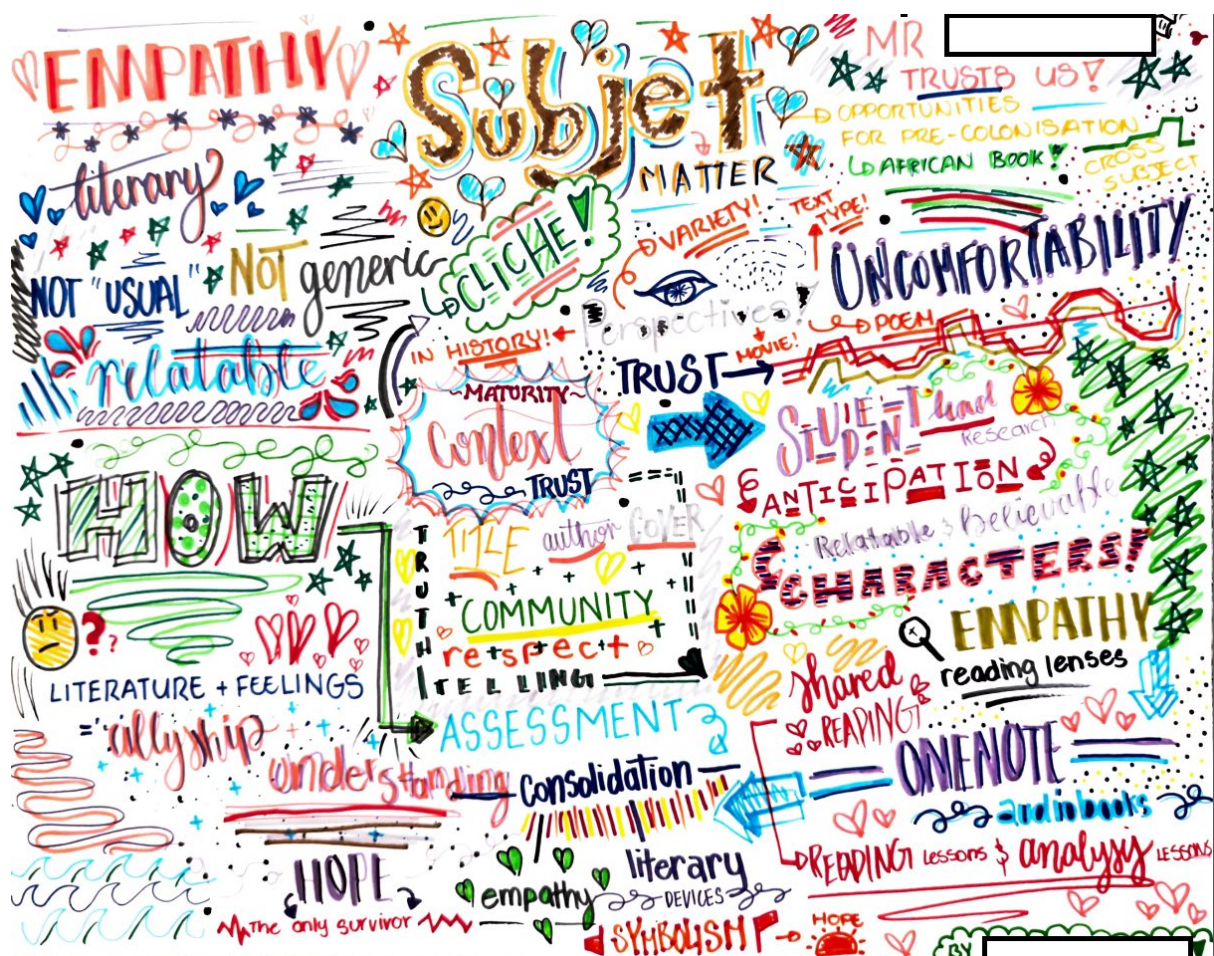 EMPATHY
Subjet
MATTER
MR
TRUSTS US!
OPPORTUNITIES
FOR PRE-COLONISATION
AFRICAN BOOK!
CROSS
SUBJECT
literary
NOT "USUAL"
NOT generic
CLICHE!
VARIETY!
TEXT
TYPE!
UNCOMFORTABILITY
relatable
IN HISTORY!
Perspectives!
POEM
MOVIE!
TRUST
MATURITY
context
TRUST
STUDENT lead
Research
ANTICIPATION
Relatable & Believable
CHARACTERS!
HOW
TRUTH
TITLE author COVER
COMMUNITY
respect
TELLING
EMPATHY
reading lenses
??
LITERATURE + FEELINGS
= 'allyship
understanding
ASSESSMENT
consolidation
shared
READING
ONENOTE
audiobooks
READING lessons & analysis LESSONS
HOPE
The only survivor
empathy
literary
DEVICES
SYMBOLISM
HOPE
BY